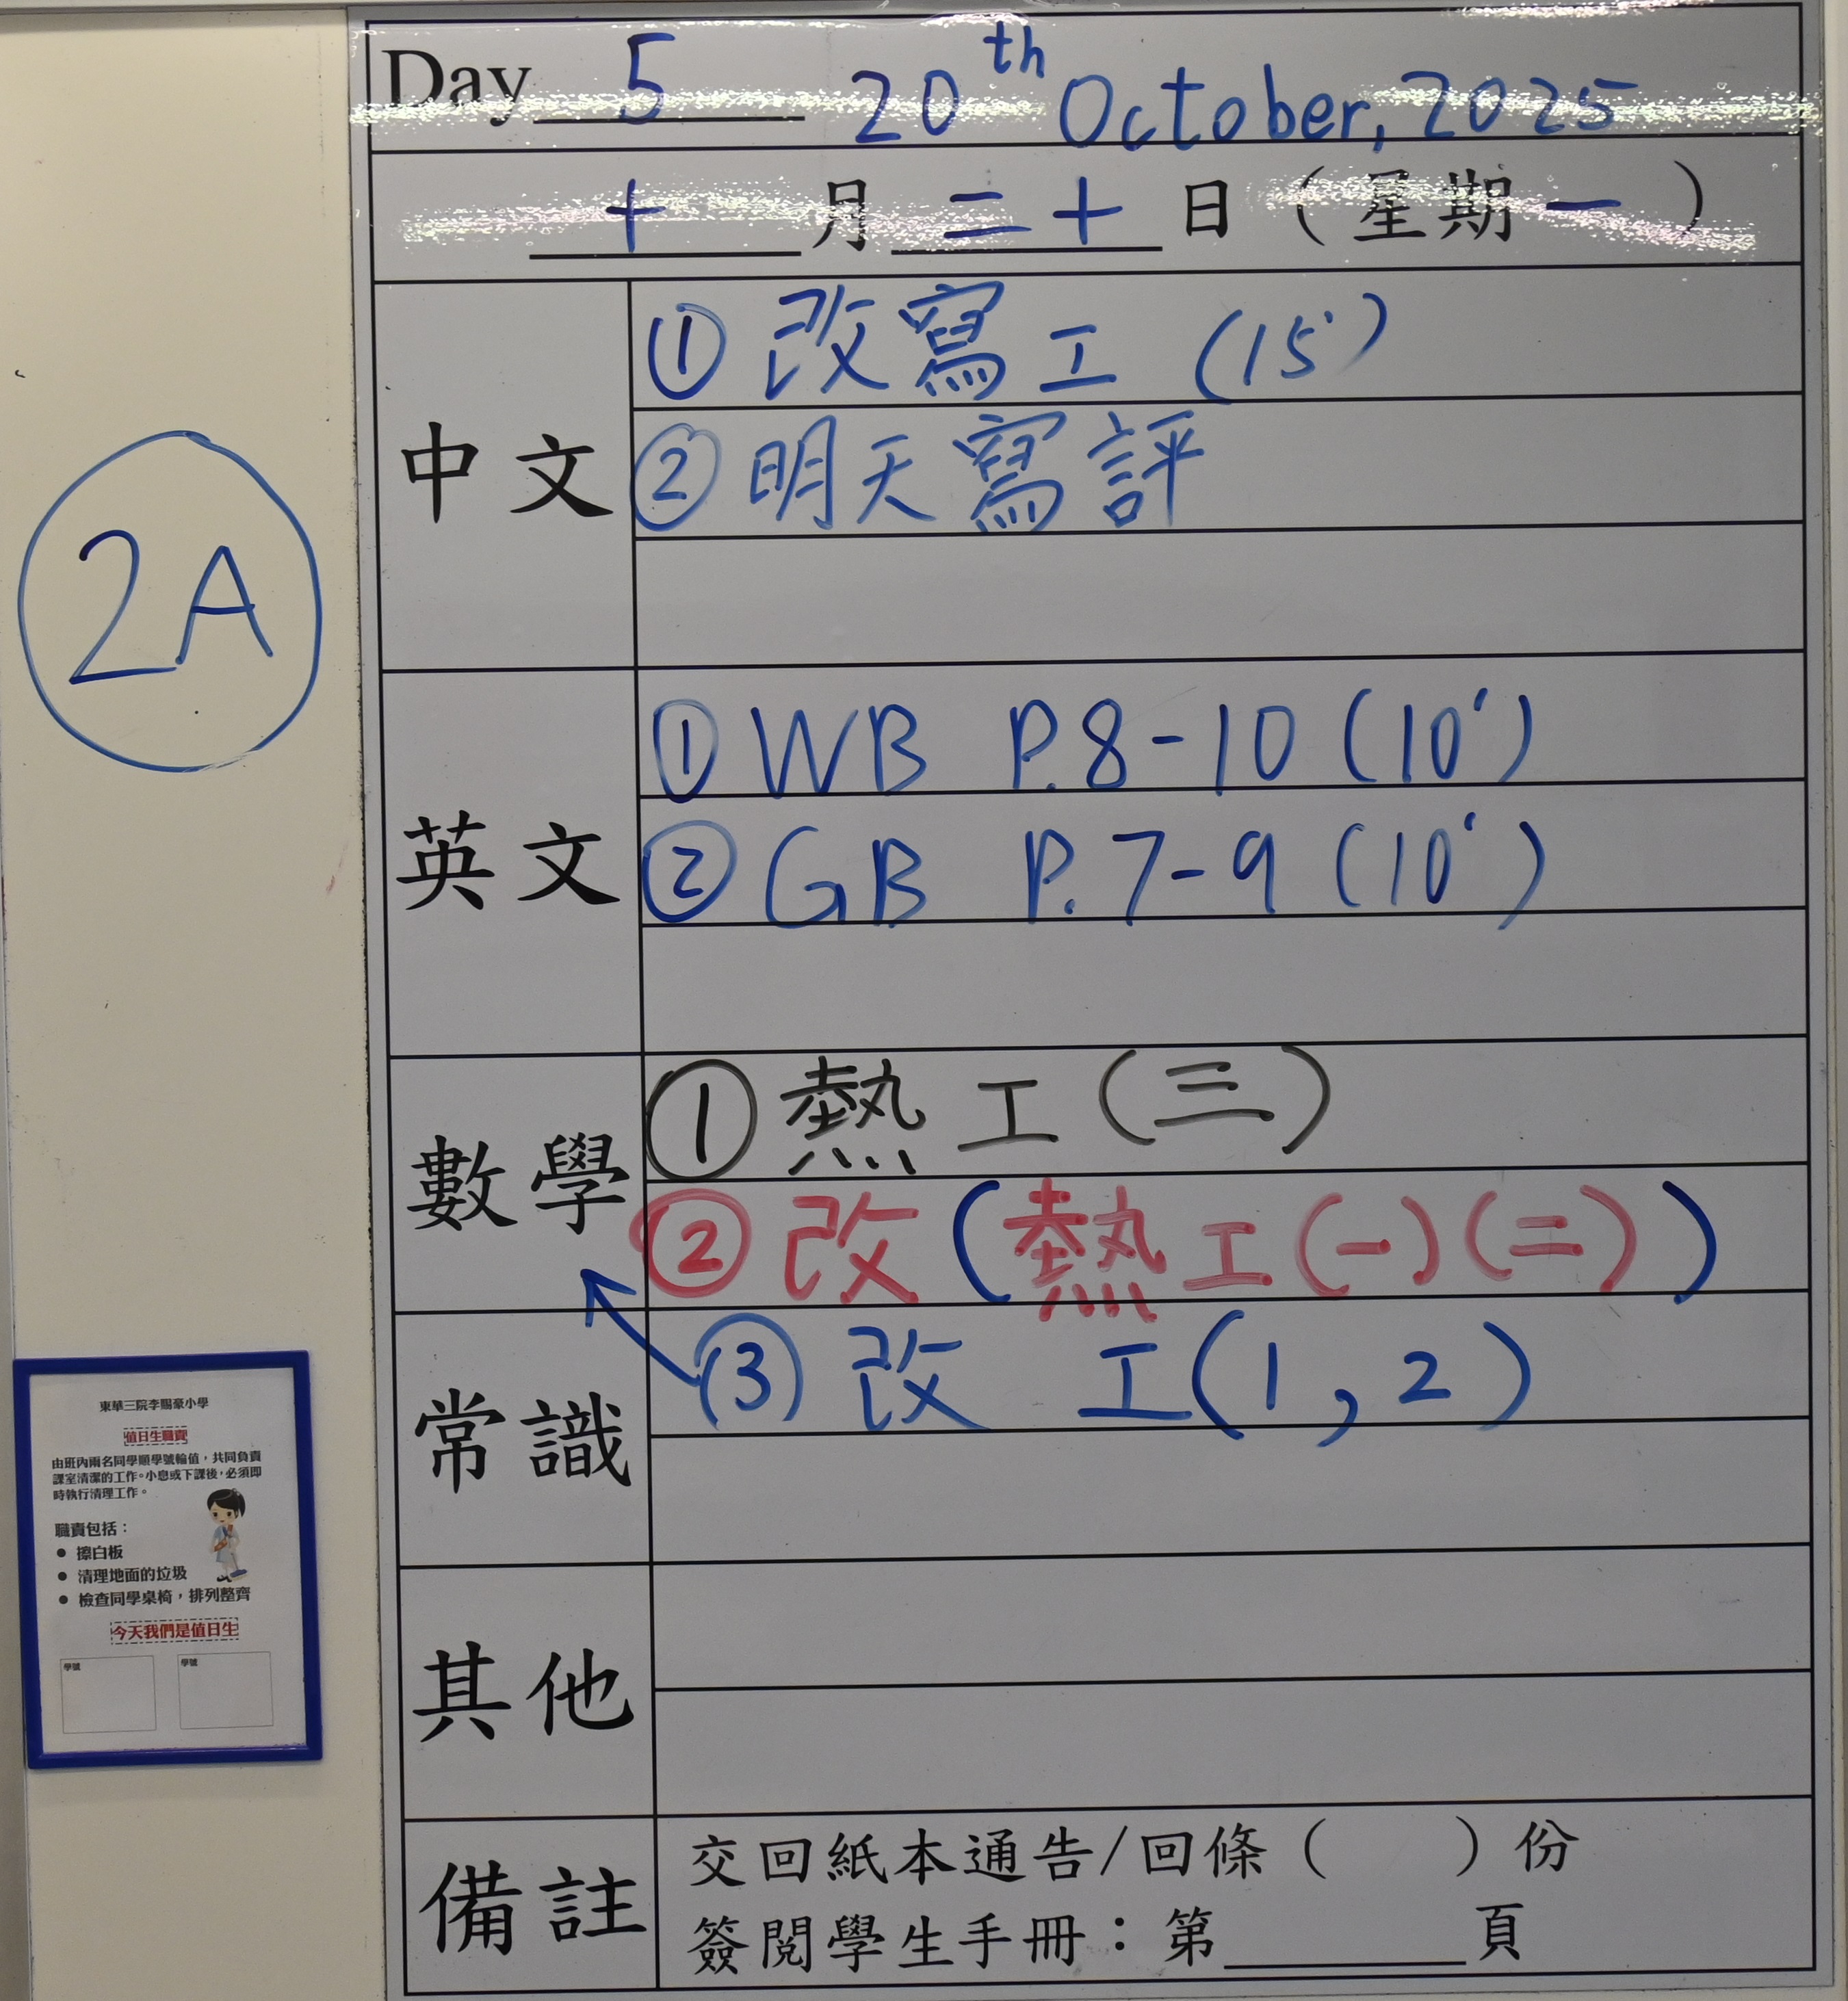 Day 5 20th October, 2025
十 月 二十 日 (星期一)
2A
中文
① 改寫工 (15')
② 明天寫評
英文
① WB P.8-10 (10')
② GB P.7-9 (10')
數學
① 熱工(三)
② 改(熱工(一)(二))
常識
③ 改 工(1,2)
其他
備註
交回紙本通告/回條( )份
簽閱學生手冊:第______頁
東華三院李賜豪小學
值日生職責
由班內兩名同學順學號輪值,共同負責
課室清潔的工作。小息或下課後,必須即
時執行清理工作。
職責包括:
● 擦白板
● 清理地面的垃圾
● 檢查同學桌椅,排列整齊
今天我們是值日生
學號 學號